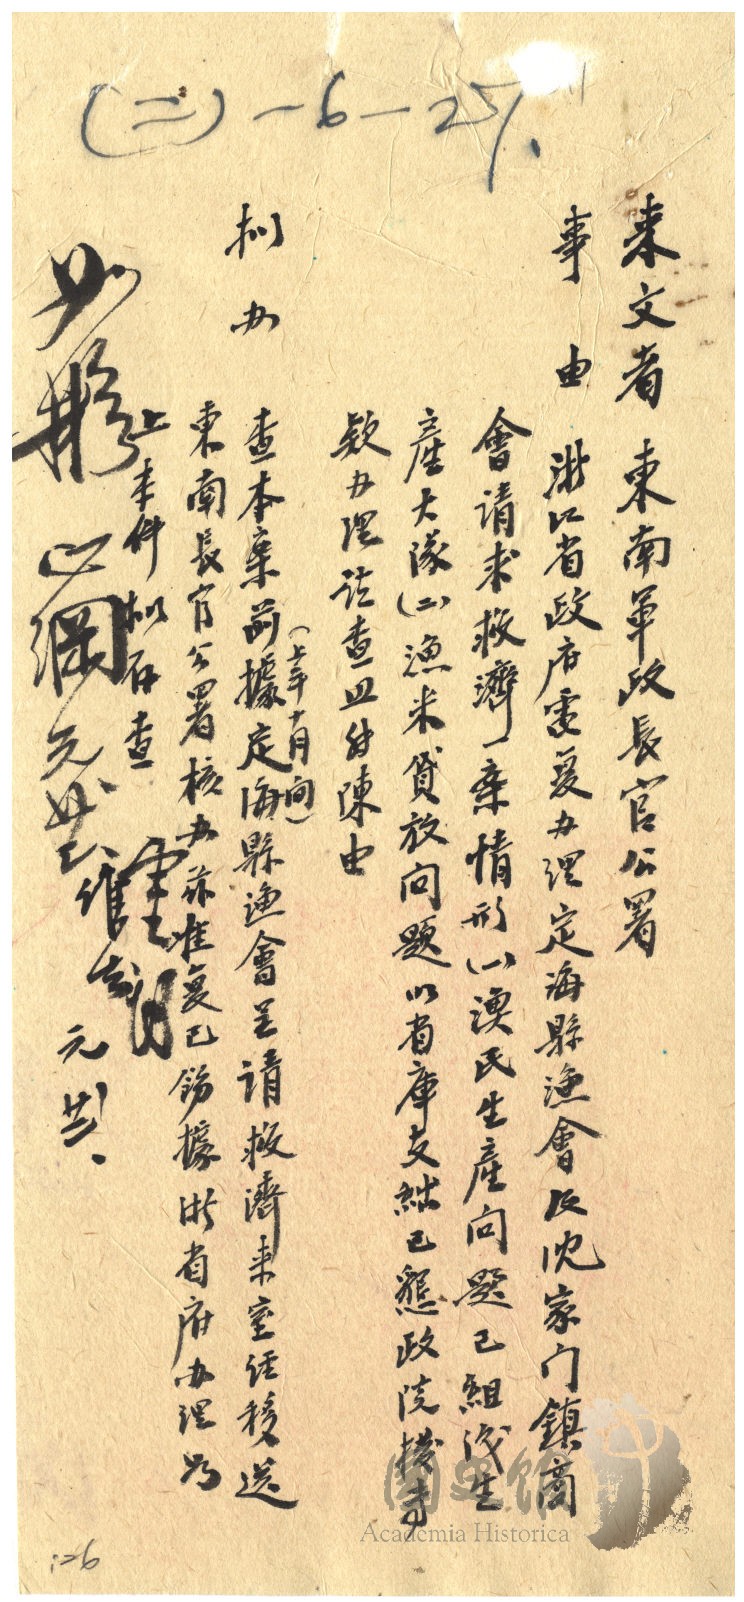 (二)-6-25.
来文者 東南軍政長官公署
事由 浙江省政府電复办理定海縣漁會及沈家门鎮商
會請求救濟一案情形(一)漁民生產问题已組成生
產大隊(二)漁米貸放问题以省庫支絀已懇政院撥专
款办理請查照等由
拟办 查本案前據定海縣漁會呈請救濟来室経移送
(上年十月间)
東南長官公署核办茲准复已飭據浙省府办理为
上来件拟存查
如擬
元廿
126
國史館
Academia Historica